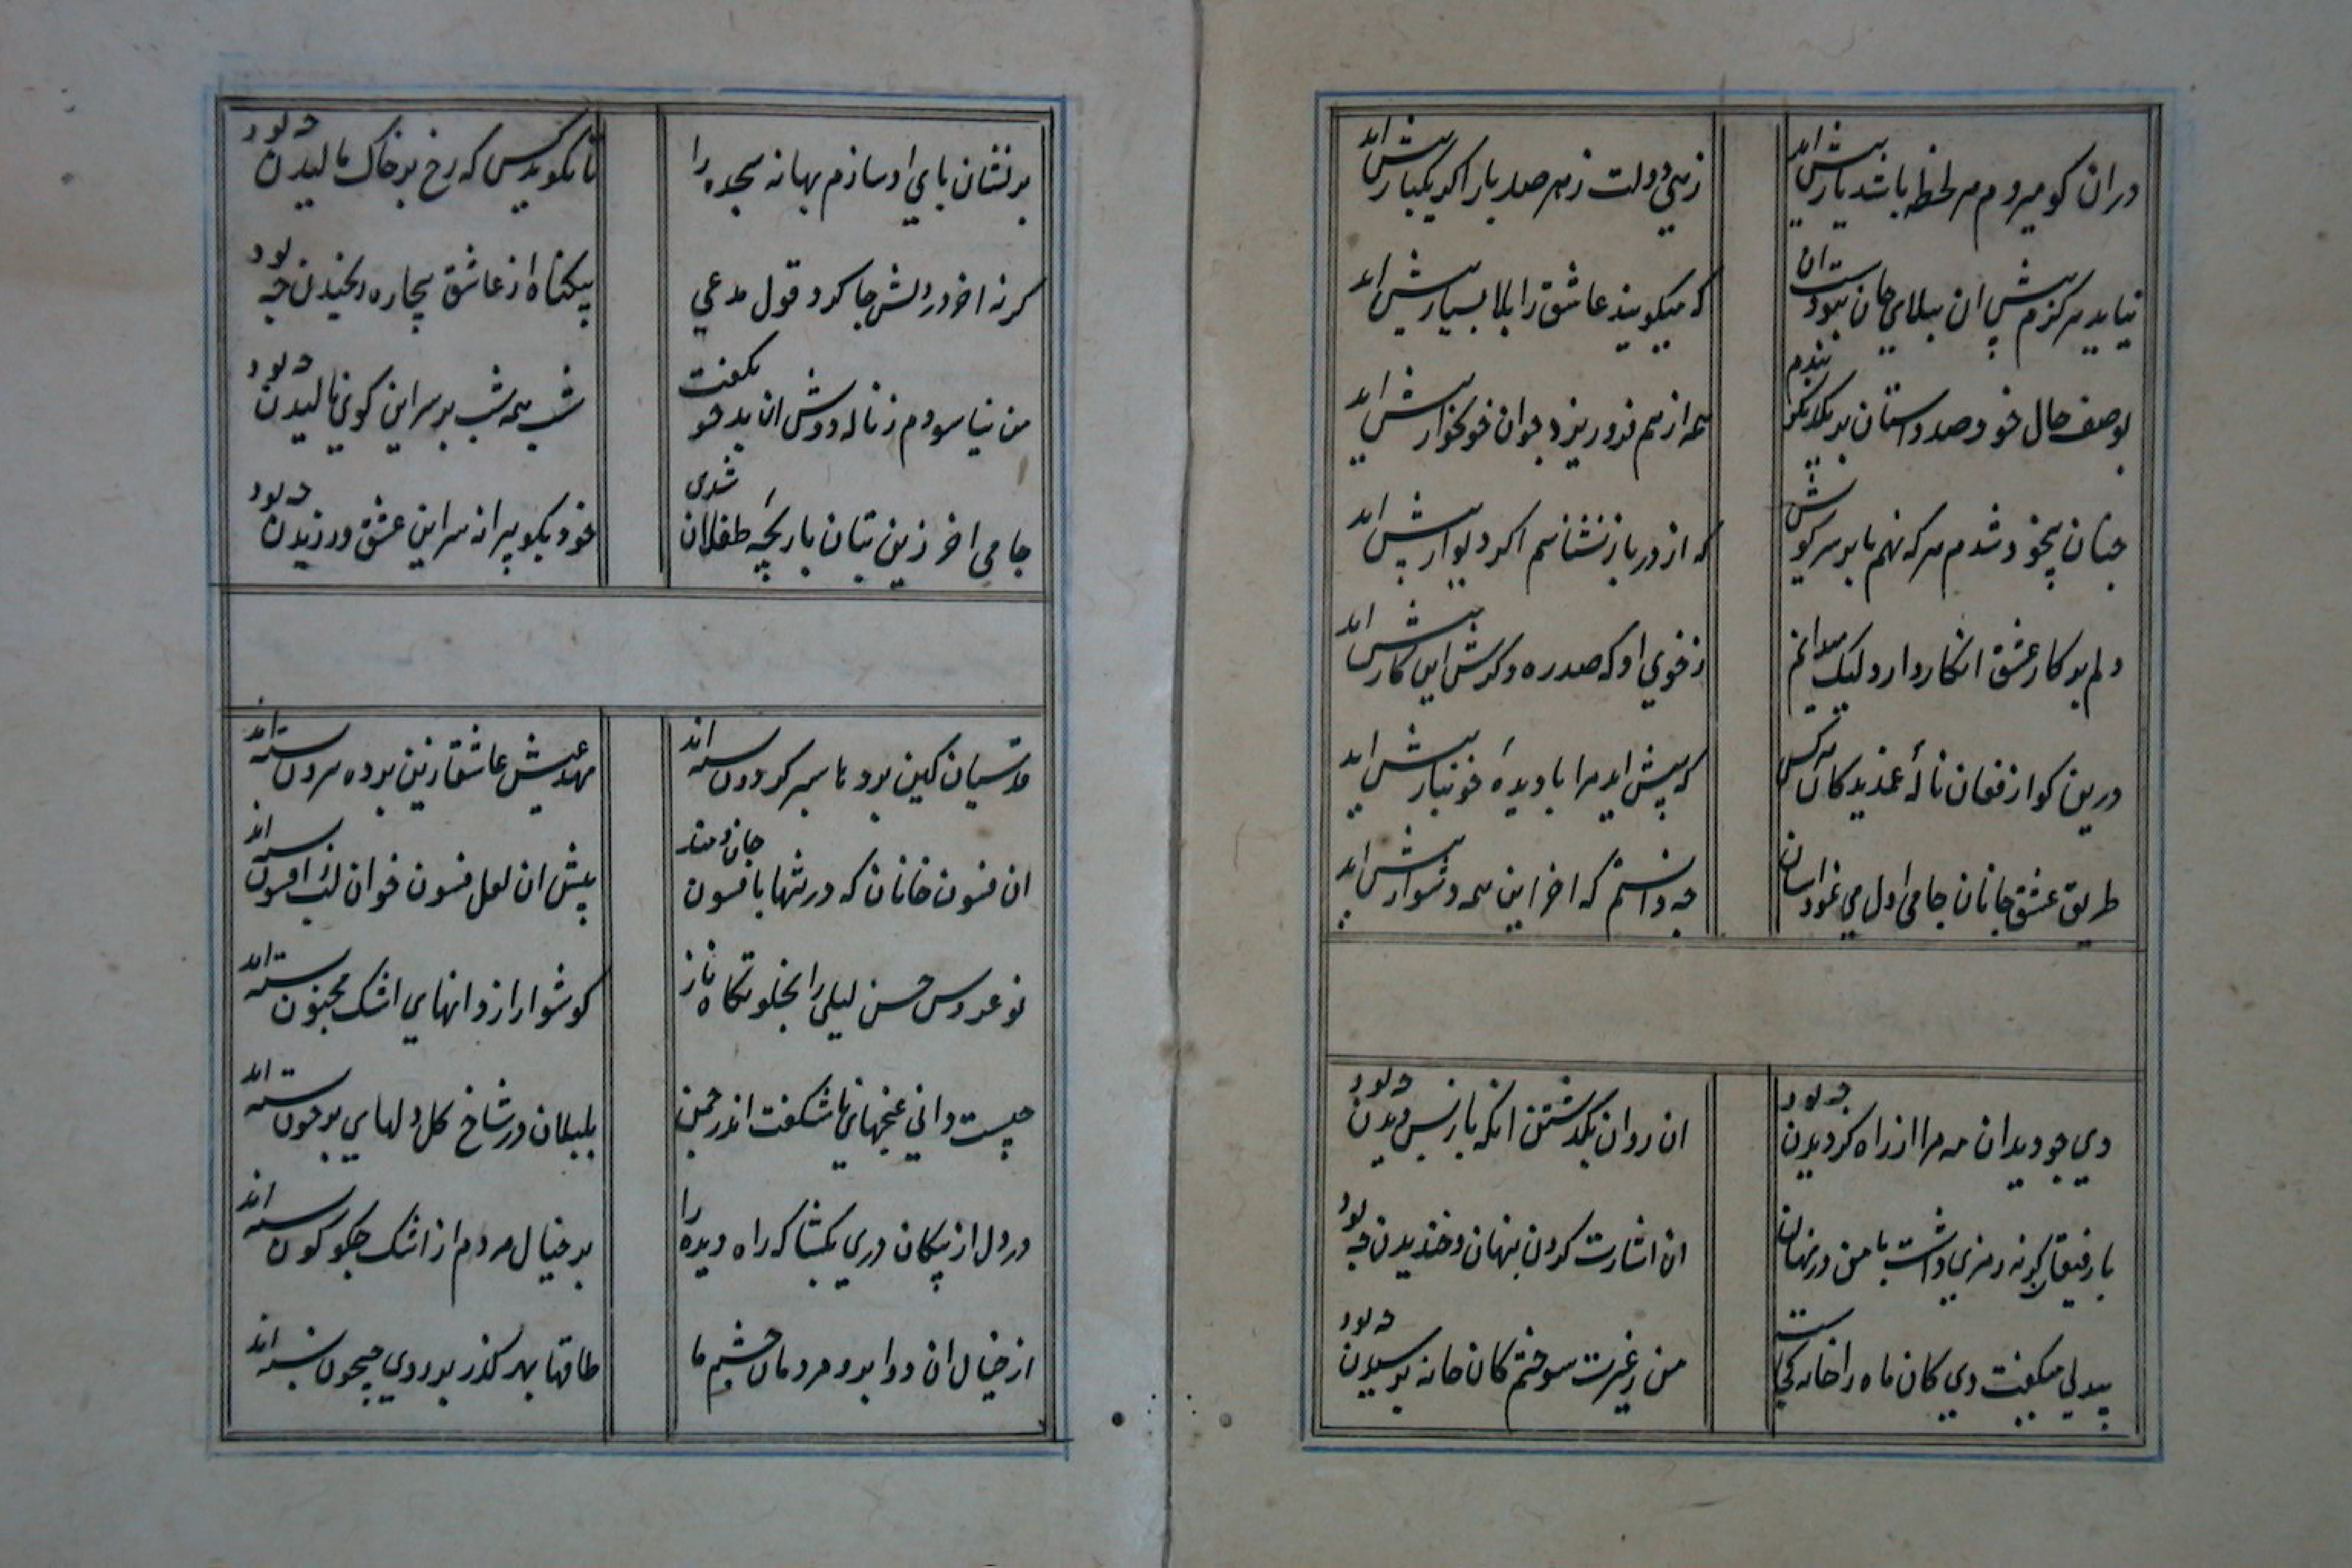 دران کو میروم هر لحظه باشد یار پیش اید زهی دولت زهر صد بار اکر یکبار پیش اید
نیاید هرکزم پیش ان بلای جان نبود است ان که میکویند عاشق را بلا بسیار پیش اید
بوصف حال خود صد داستان بر یکدیکر بندم همه از هم فرو ریزد جو ان خونخوار پیش اید
جنان بیخود شدم هر که نهم پا بر سر کویش که از در باز نشناسم اکر دیوار پیش اید
دلم بر کار عشق انکار دارد لیک میدانم ز خوی او که صد ره دکرش این کار پیش اید
درین کو از فغان نالهٔ غمدیدکان هر کس که پیش اید مرا با دیدهٔ خونبار پیش اید
طریق عشق جانان جامی اول می نمود اسان جه دانستم که اخر این همه دشوار پیش اید
دی جو دید ان مه مرا از راه کردیدن جه بود ان روان بکذشتن انکه باز پس دیدن جه بود
با رفیقان کر نه رمزی داشت با من در نهان ان اشارت کردن پنهان و خندیدن جه بود
بیدلی میکفت دی کان ماه را خانه کجاست من ز غیرت سوختم کان خانه پرسیدن جه بود
بر نشان پای او سازم بهانه سجده را تا نکوید کس که رخ بر خاک مالیدن جه بود
کر نه اخر در دلش جا کرد قول مدعی بیکناه از عاشق بیچاره رنجیدن جه بود
من نیاسودم ز ناله دوش ان بدخو بکفت شب همه شب بر سر این کوی نالیدن جه بود
جامی اخر زین بتان بازیچهٔ طفلان شدی خود بکو پیرانه سر این عشق ورزیدن جه بود
قدسیان کین پرده ها بر کردون بسته اند مهد عیش عاشقان زین پرده بیرون بسته اند
ان فسون خانان که در تنها بافسون جان دمند پیش ان لعل فسون خوان لب ز افسون بسته اند
نو عروس حسن لیلی را بخلوتکاه ناز کوشوار از دانهای اشک مجنون بسته اند
چیست دانی غنچهای ناشکفت اندر چمن بلبلان در شاخ کل دلهای پر خون بسته اند
در دل از پیکان دری بکشا که راه دیده را بر خیال مردم از اشک جکرکون بسته اند
از خیال ان دو ابرو مردمان چشم ما طاقها بهر کذر بر روی جیحون بسته اند